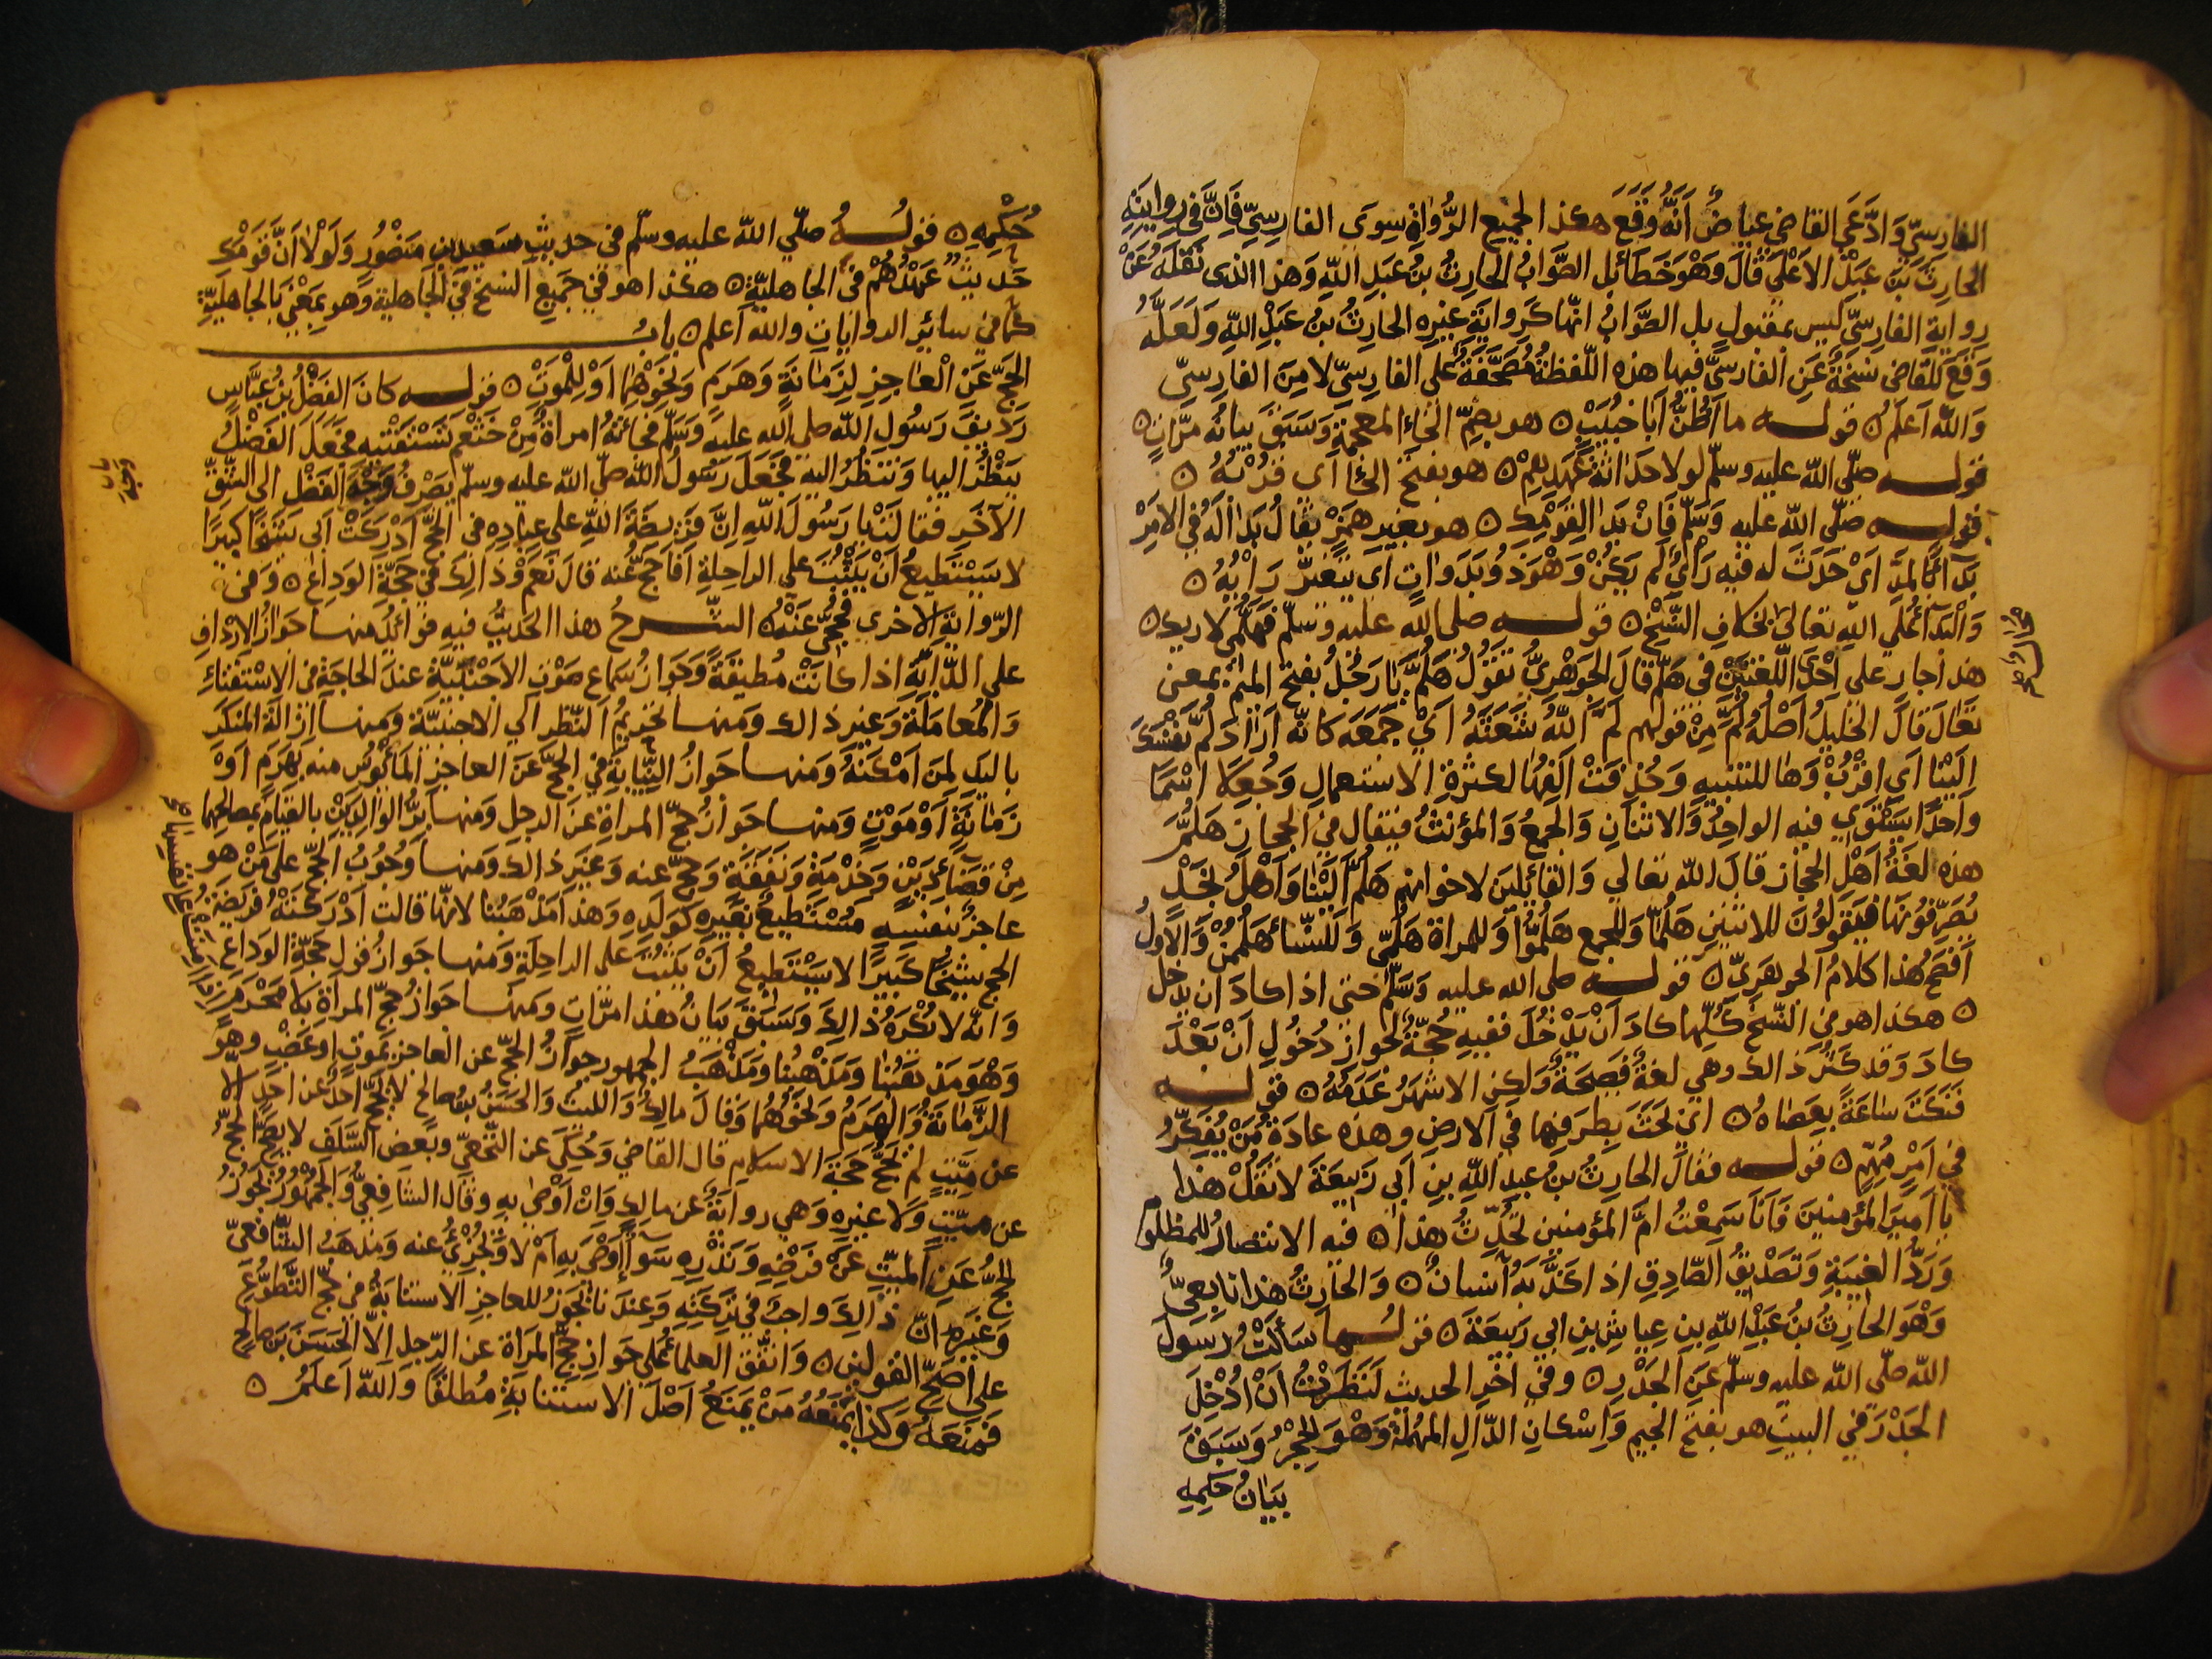 الفارسيّ وَادَّعَي القاضي عياضُ أنَّهُ وَقَعَ هكذا لجميع الرُّوَاةِ سِوَى الفارِسِيّ فَاِنَّ في رِوايَتِهِ
الحَارِثَ بْنَ عَبْدِ الاَعْلَي قالَ وَهْوَ خَطَأٌ بَل الصَّوَابُ الحَارِثُ بنُ عَبدِ اللّهِ وَهذا الذى نَقَلَهُ عَنْ
رِوايةِ الفارِسيّ ليس بمقبول بل الصَّوَابُ انّها كَرِوايَةِ غيرِه الحارِثُ بنُ عَبْدِ اللّهِ وَلَعَلَّهُ
وَقَعَ للقاضي نُسْخَةٌ عَنِ الفارسيّ فيها هذه اللّفظةُ مُصَحَّفَةٌ على الفارِسِيّ لا مِنَ الفارِسِيّ
وَاللّه اَعلَمُ قوله ما اَظُنُّ اَبا خُبَيْبٍ هو بضمِّ الخاءِ المعجمةِ وَسَبَقَ بيانُه مرَّاتٍ
قوله صلّى الله عليه وسلّم لولا حَدَاثَةُ عَهْدِهِمْ هو بفتح الحَا اى قُرْبُهُ
قوله صلّى الله عليه وَسَلّم فَاِنْ بَدَا لِقَوْمِكِ هو بغير هَمْزٍ يقالُ بَدَا لَهُ في الامْرِ
بَدَاءً بالمدّ اَيْ حَدَثَ له فيه رَأيٌ لَم يَكُنْ وَهْوَ ذُو بَدَوَاتٍ اى يَتَغَيَّرُ رَأيُهُ
وَالْبَدَآءُ عَلَي اللّهِ تعالى بخلافِ النَّسْخِ قوله صلى الله عليه وَسلّم فَهَلُمِّي لاُرِيَكِ
هذا جارٍ على اِحْدَى اللّغتَيْنِ في هَلُمّ قالَ الجَوْهَرِيُّ تَقُولُ هَلُمَّ يا رَجُلُ بفتح الميم بمعنى
تَعَالَ قالَ الخليلُ اَصْلُهُ لُمَّ مِنْ قولهم لَمَّ اللّهُ شَعَثَهُ أيْ جَمَعَه كانّه اَرَادَ لُمَّ نَفْسَكَ
اِلَيْنَا اَي اقْرُبْ وَها للتنبيهِ وَحُذِفَتْ اَلِفُهَا لكَثرةِ الاسْتعمالِ وَجُعِلا اسْمًا
واحدًا يَسْتَوِي فيه الواحِدُ وَالاثنَانِ وَالجَمعُ وَالمؤنثُ فيقال في الجماعة هَلُمَّ
هذه لغةُ اَهْلِ الحجازِ قالَ اللّه تَعَالي وَالقآئِلينَ لاخوانِهِم هَلُمَّ اِلَيْنَا وَاَهْلُ نَجْدٍ
يُصَرِّفُونَهَا فيَقولُونَ للاثنَيْنِ هَلُمَّا وَللجمع هَلُمُّوْا وَللمراةِ هَلُمِّي وَلِلنّسَاءِ هَلْمُمْنَ وَالاَوَّلُ
اَفصَحُ هذا كلامُ الجوهَرِيّ قوله صلى الله عليه وَسَلّم حَتّي اذا كادَ ان يَدْخُل
هكذا هو في النّسخ كُلّها كادَ اَنْ يَدْخُلَ ففيه حُجّةٌ لجوازِ دُخُولِ اَنْ بَعْدَ
كادَ وَقد كَثُرَ ذالك وهي لغةٌ فَصيحَةٌ وَلكِن الاشهَرُ عَدَمُهُ قوله
فَنَكَتَ سَاعَةً بِعَصَاهُ اَيْ بَحَثَ بِطَرَفِهَا في الارضِ وهذه عادَةُ مَنْ يُفَكِّرُ
في اَمْرٍ مُهِمٍّ قوله فقالَ الحارِثُ بنُ عبدِ اللّهِ بنِ اَبي رَبيعَةَ لا تَقُلْ هذا
يا اَمِيرَ المؤمنينَ فَاَنَا سَمِعْتُ امَّ المؤمنين تُحَدِّثُ هذا فيه الانتصارُ للمظلوم
وَرَدُّ الغِيبَةِ وَتَصْدِيقُ الصّادِقِ اذا كَذَّبَهُ اِنسانٌ وَالحارِثُ هذا تابِعيٌّ
وَهْوَ الحارِثُ بنُ عَبْدِ اللّهِ بنِ عياشِ بنِ ابي رَبيعَةَ قولُها سَأَلْتُ رَسولَ
اللّهِ صلّى اللّه عليه وسلّم عَنِ الجَدْرِ وفي آخرِ الحديثِ لَنَظَرْتُ اَنْ اُدْخِلَ
الجَدْرَ في البيت هو بفتح الجيمِ وَاِسْكانِ الدّالِ المهملةِ وَهْوَ الحِجْرُ وَسَبَقَ
بيَانُ حُكمِهِ
حُكْمِهِ قولُهُ صلّى اللّه عليه وسلّم في حديثِ سَعيدِ بنِ مَنصُورٍ وَلَوْلا اَنَّ قَوْمَكِ
حَديثٌ عَهْدُهُمْ في الجاهليّةِ هكذا هو في جَميعِ النسخ في الجَاهليّةِ وَهو بمعْنَى بالجاهليَّةِ
كمَا في سائرِ الرواياتِ واللّه اَعلم بابُ
الحَجّ عَنِ الْعاجِزِ لِزَمَانَةٍ وَهَرَمٍ وَنَحْوِهِمَا اَوْ لِلْمَوْتِ قوله كانَ الفَضْلُ بنُ عبَّاسٍ
رَدِيفَ رَسُولِ اللّه صلى اللّه عليه وَسَلّم فجائتهُ امراةٌ مِنْ خَثْعَمٍ تَسْتَفْتِيهِ فجَعَلَ الفَضْلُ
يَنْظُرُ اليها وَتَنْظُرُ اليهِ فجَعَلَ رَسُولُ اللّه صلّى اللّه عليه وسلّم يَصْرِفُ وَجْهَ الفَضْلِ الى الشِّقِّ
الآخَرِ فقالَتْ يا رَسُولَ اللّهِ اِنَّ فَرِيضَةَ اللّهِ على عبادِهِ في الحَجّ اَدْرَكَتْ اَبي شَيْخًا كبيرًا
لا يَسْتَطِيعُ اَنْ يَثْبُتَ على الراحِلةِ اَفَاَحُجُّ عنه قالَ نَعَمْ وَذالِكَ في حَجّةِ الوَدَاعِ وَفي
الرّوايةِ الاخرى فحُجِّي عَنْهُ الشّرحُ هذا الحديثُ فيهِ فوائدُ منها جَوازُ الاِرْدافِ
علي الدّابّةِ اذا كانَتْ مُطيقَةً وَجَوازُ سَماعِ صَوْتِ الاَجْنَبِيَّةِ عندَ الحاجَةِ في الاسْتفتاءِ
وَالمُعَامَلَةِ وَغيرِ ذالك وَمنها تحريمُ النّظرِ الي الاجنبيّةِ وَمنها ازالَةُ المُنكَر
باليَدِ لِمَنْ اَمْكَنَهُ وَمنها جَوازُ النّيابَةِ في الحَجّ عَنَ العاجزِ المَأيُوسِ منه بِهَرَمٍ اَوْ
زَمَانَةٍ اَوْ مَوْتٍ وَمنها جَوازُ حَجّ المراةِ عَنِ الرجلِ وَمنها بِرُّ الوَالِدَيْنِ بالقيامِ بمصالحِهِما
مِنْ قضَاءِ دَيْنٍ وَخِدْمَةٍ وَنَفَقَةٍ وَحَجٍّ عنه وَغَيرِ ذالك وَمنها وُجُوبُ الحَجّ على مَنْ هو
عاجزٌ بنفسِهِ مُسْتَطيعٌ بغَيْرِهِ كَوَلَدِهِ وَهذا مَذْهَبُنا لانّها قالت اَدْرَكَتْهُ فَرِيضَةُ
الحج شيخًا كبيرًا لا يَسْتَطِيعُ اَنْ يَثْبُتَ على الراحِلَةِ وَمنها جَوازُ قول حَجّةِ الوَدَاعِ
وَانّه لا يُكْرَهُ ذالِكَ وَسَبَقَ بيَانُ هذا مرَّاتٍ وَمنها جَوازُ حَجّ المراَةِ بلا مَحْرَمٍ
وَهْوَ مَذْهَبُنا وَمَذْهَبُ الجمهورِ جوازُ الحَجّ عن العاجز بمَوتٍ اوعَضْبٍ وهو
الزَّمَانَةُ وَالهَرَمُ وَنحْوُهُما وَقالَ مالِكٌ وَالليثُ وَالحَسَنُ بنُ صالحٍ لا يَحُجّ اَحَدٌ عن احدٍ الاّ
عن مَيِّتٍ لم يَحُجّ حَجَّةَ الاسلامِ قال القاضي وَحُكِيَ عن النَّخَعيّ وبعض السَّلَفِ لا يصِحُّ الحجّ
عن ميّتٍ وَلا غيرِهِ وَهي روايةٌ عن مالِكٍ وَاِنْ اَوْصَى بهِ وقالَ الشّافِعيُّ وَالجُمْهُورُ يَجُوزُ
الحجُّ عَنِ المَيِّتِ عَنْ فَرْضِهِ وَنَذْرِهِ سَوَآءٌ اَوْصَى بِهِ اَمْ لا وَيُجْزِئُ عنه وَمَذهَبُ الشّافعيّ
وَغيره انّ ذالِكَ واجبٌ في تَرِكَتِهِ وَعِندَنا يَجُوزُ للعاجزِ الاستنابَةُ في حَجّ التَّطَوُّعِ
على اَصَحّ القولين وَاتّفقَ العلماءُ على جَوازِ حَجّ المَرْاَةِ عن الرّجل اِلاّ الحَسَنَ بنَ صالحٍ
فمَنَعَهُ وَكذا يَمْنَعُهُ مَنْ يَمْنَعُ اَصْلَ الاسْتنابَةِ مُطلَقًا وَاللّه اَعلَمُ